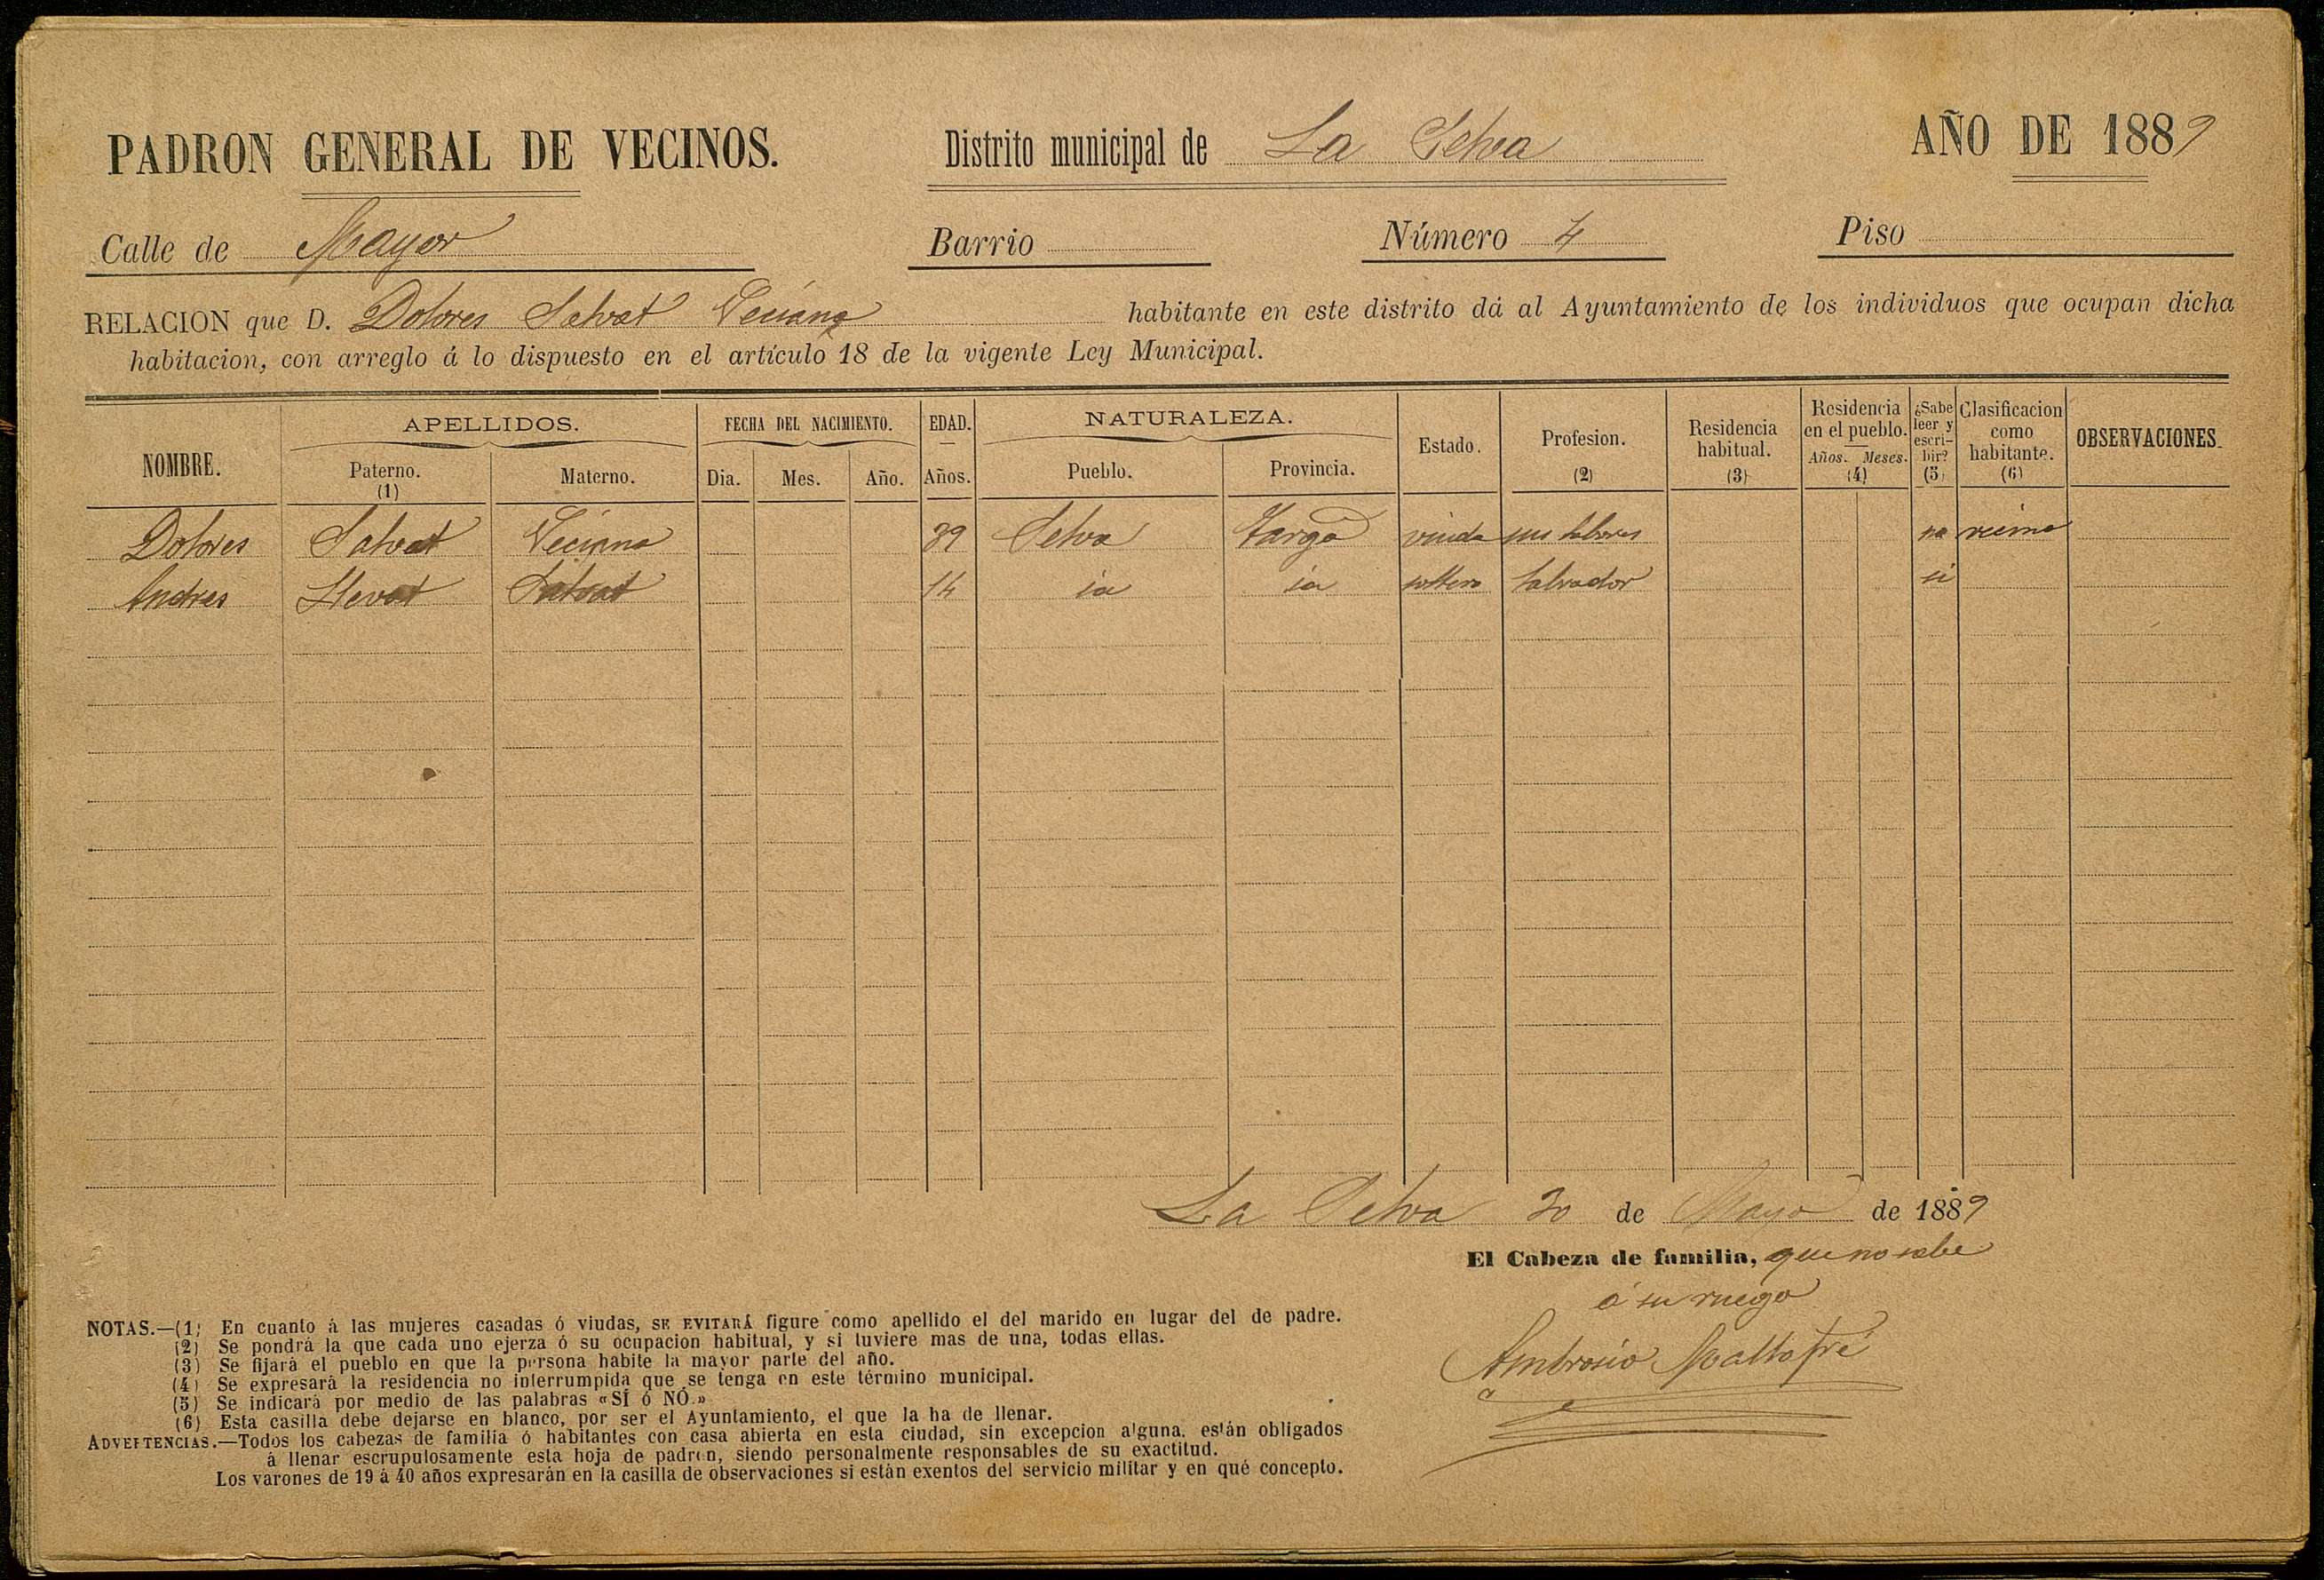 PADRON GENERAL DE VECINOS. Distrito municipal de La Selva AÑO DE 1889
Calle de Mayor Barrio Número 4 Piso
RELACION que D. Dolores Salvat Veciana habitante en este distrito dá al Ayuntamiento de los individuos que ocupan dicha
habitacion, con arreglo á lo dispuesto en el artículo 18 de la vigente Ley Municipal.
NOMBRE. APELLIDOS. FECHA DEL NACIMIENTO. EDAD. NATURALEZA. Estado. Profesion. (2) Residencia habitual. (3) Residencia en el pueblo. Años. Meses. (4) ¿Sabe leer y escribir? (5) Clasificacion como habitante. (6) OBSERVACIONES.
Paterno. (1) Materno. Dia. Mes. Año. Años. Pueblo. Provincia.
Dolores Salvat Veciana 39 Selva Targa viuda sus labores no vecina
Andres Llevat Salvat 14 id id soltero labrador si
La Selva 30 de Mayo de 1889
El Cabeza de familia, que no sabe
á su ruego
Ambrosio Maltofré
NOTAS.—(1) En cuanto á las mujeres casadas ó viudas, SE EVITARÁ figure como apellido el del marido en lugar del de padre.
(2) Se pondrá la que cada uno ejerza ó su ocupacion habitual, y si tuviere mas de una, todas ellas.
(3) Se fijará el pueblo en que la persona habite la mayor parte del año.
(4) Se expresará la residencia no interrumpida que se tenga en este término municipal.
(5) Se indicará por medio de las palabras «SÍ ó NÓ.»
(6) Esta casilla debe dejarse en blanco, por ser el Ayuntamiento, el que la ha de llenar.
ADVERTENCIAS.—Todos los cabezas de familia ó habitantes con casa abierta en esta ciudad, sin excepcion alguna, están obligados
á llenar escrupulosamente esta hoja de padron, siendo personalmente responsables de su exactitud.
Los varones de 19 á 40 años expresarán en la casilla de observaciones si están exentos del servicio militar y en qué concepto.